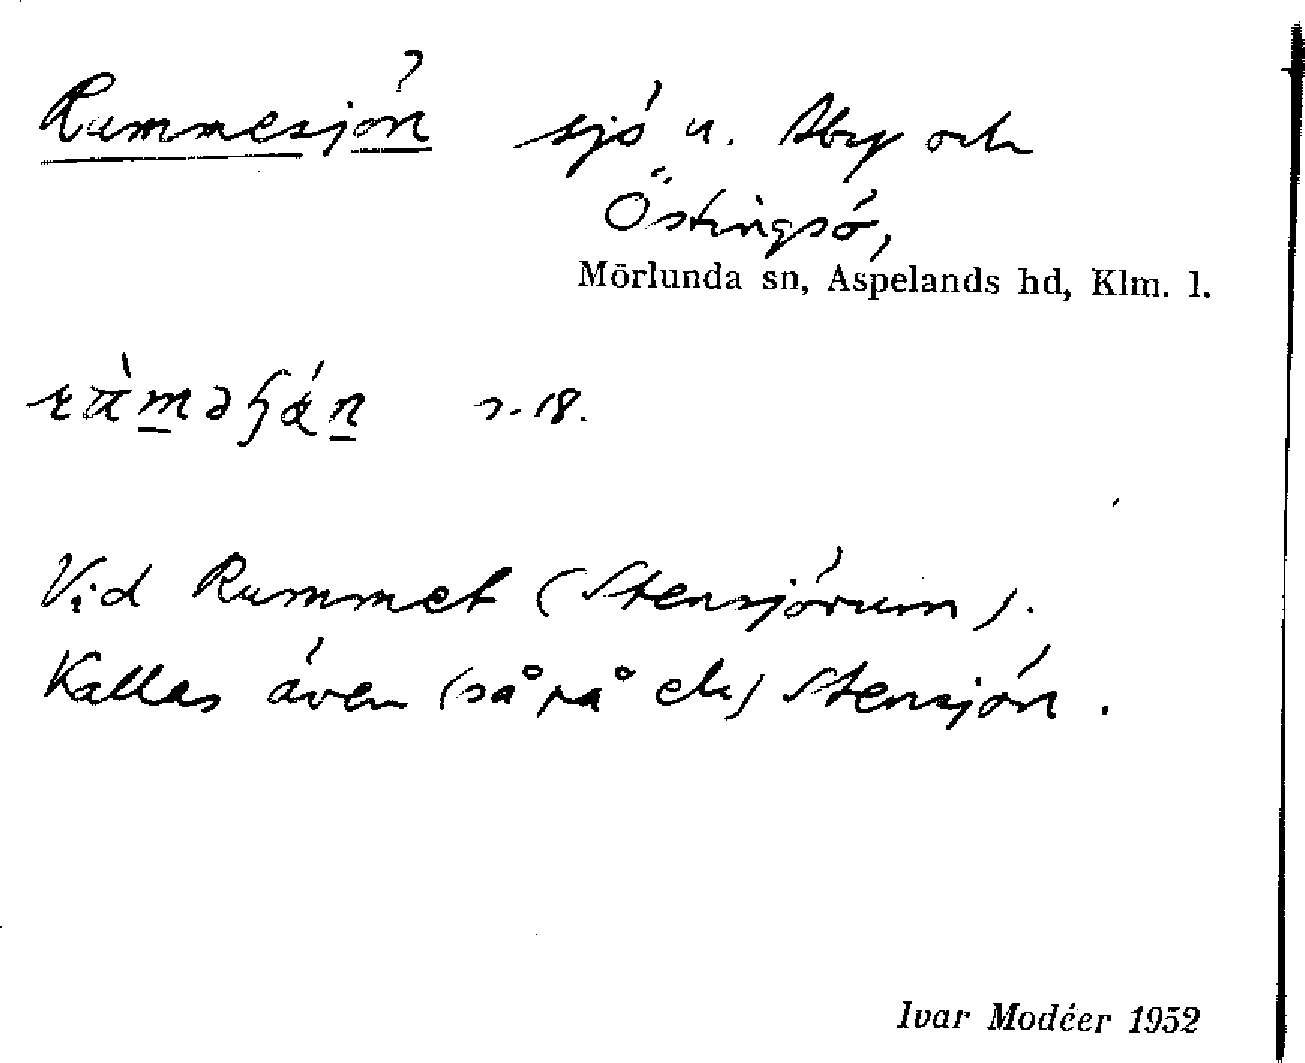 Rummesjön sjö u. Åby och
Östingsö,
Mörlunda sn, Aspelands hd, Klm. l.
s. 18.
Vid Rummet (Stensjörum).
Kallas även (så på ek) Stensjön.
Ivar Modéer 1952